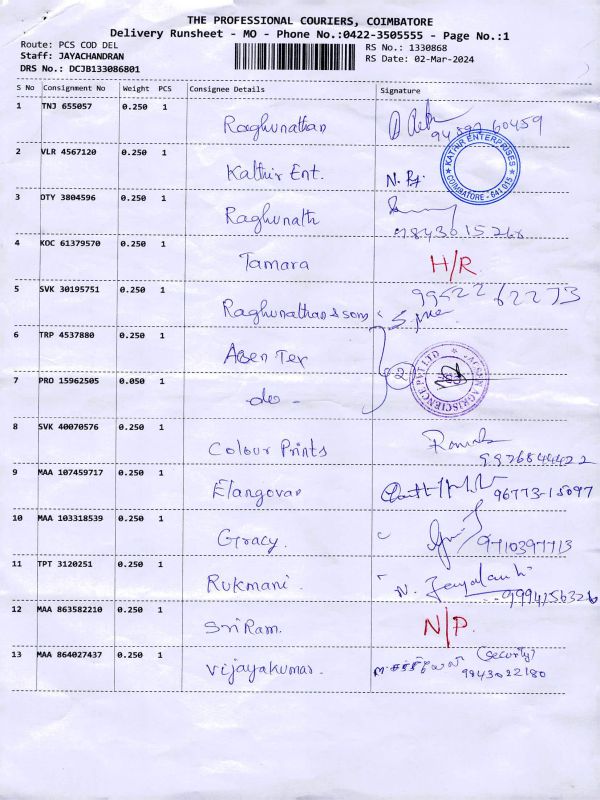 THE PROFESSIONAL COURIERS, COIMBATORE
Delivery Runsheet - MO - Phone No.:0422-3505555 - Page No.:1
Route: PCS COD DEL
RS No.: 1330868
Staff: JAYACHANDRAN
RS Date: 02-Mar-2024
DRS No.: DCJB133086801
S No Consignment No Weight PCS Consignee Details Signature
1 TNJ 655057 0.250 1 Raghunathan
2 VLR 4567120 0.250 1 Kathir Ent. KATHIR ENTERPRISES COIMBATORE - 641 015
3 OTY 3804596 0.250 1 Raghunath
4 KOC 61379570 0.250 1 Tamara H/R.
5 SVK 30195751 0.250 1 Raghunathan & sons 99522 62273
6 TRP 4537880 0.250 1 Aben Tex
7 PRO 15962505 0.050 1 do - 2 AGRISCIENCE PVT LTD
8 SVK 40070576 0.250 1 Colour Prints 9976844422
9 MAA 107459717 0.250 1 Elangovan 96773-15097
10 MAA 103318539 0.250 1 Gracy. 9710397713
11 TPT 3120251 1 0.250 Rukmani. N. Jeyalakshmi
12 MAA 863582210 0.250 1 SriRam. N/P.
13 MAA 864027437 0.250 1 Vijayakumar. (Security)
9943022180